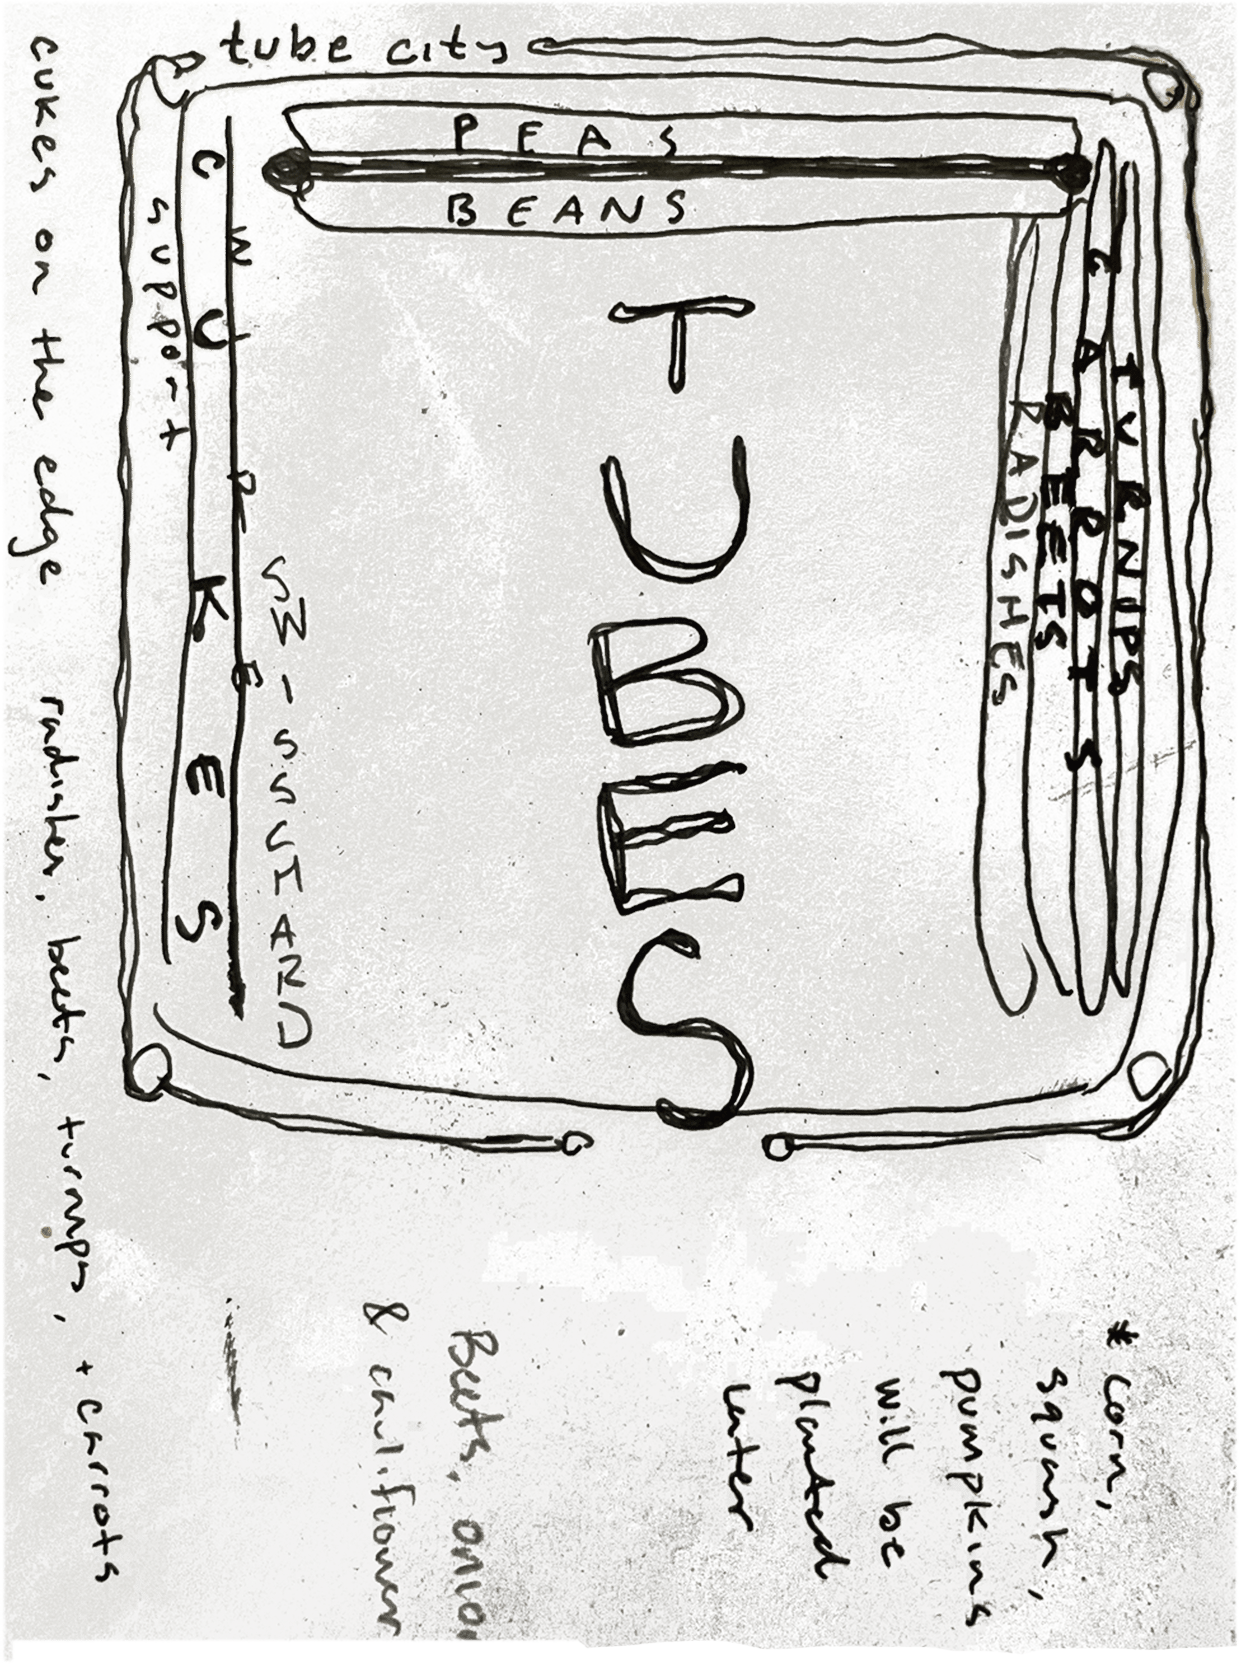 tube city
PEAS
BEANS
TUBES
TURNUPS
CARROTS
BEETS
RADISHES
SWISSCHARD
WIRE
CUKES
support
cukes on the edge
radishes, beets, turnips, + carrots
* corn,
squash,
pumpkins
will be
planted
later
Beets, onio
& cauliflower